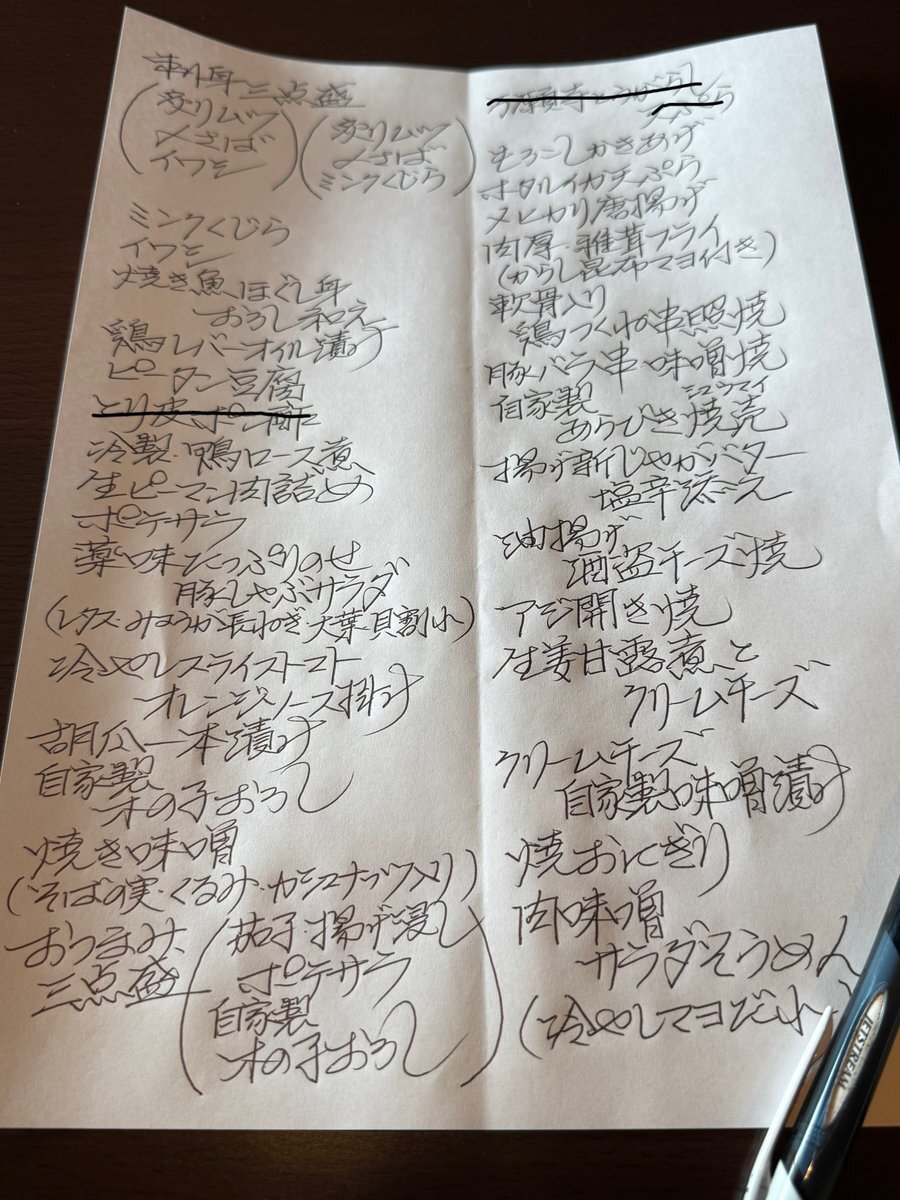 刺身三点盛
(炙りムツ
〆さば
イワシ)
(炙りムツ
〆さば
ミンクくじら)
ミンクくじら
イワシ
焼き魚ほぐし身
おろし和え
鶏レバーオイル漬け
ピータン豆腐
とり皮ポン酢
冷製・鴨ロース煮
生ピーマン肉詰め
ポテサラ
薬味たっぷりのせ
豚しゃぶサラダ
(レタス・みょうが・長ねぎ・大葉・貝割れ)
冷やしスライストマト
オレンジソース掛け
胡瓜一本漬け
自家製
木の子おろし
焼き味噌
(そばの実・くるみ・カシュナッツ入り)
おつまみ
三点盛
(茄子・揚げ浸し
ポテサラ
自家製
木の子おろし)
万願寺とうがらし
天ぷら
もろこしかきあげ
ホタルイカ天ぷら
メヒカリ唐揚げ
肉厚・椎茸フライ
(からし昆布マヨ付き)
軟骨入り
鶏つくね串照焼
豚バラ串・味噌焼
自家製
シュウマイ
あらびき焼売
揚げ新じゃがバター
塩辛添え
油揚げ
酒盗チーズ焼
アジ開き焼
生姜甘露煮と
クリームチーズ
クリームチーズ
自家製味噌漬け
焼おにぎり
肉味噌
サラダそうめん
(冷やしマヨだれ)
JETSTREAM